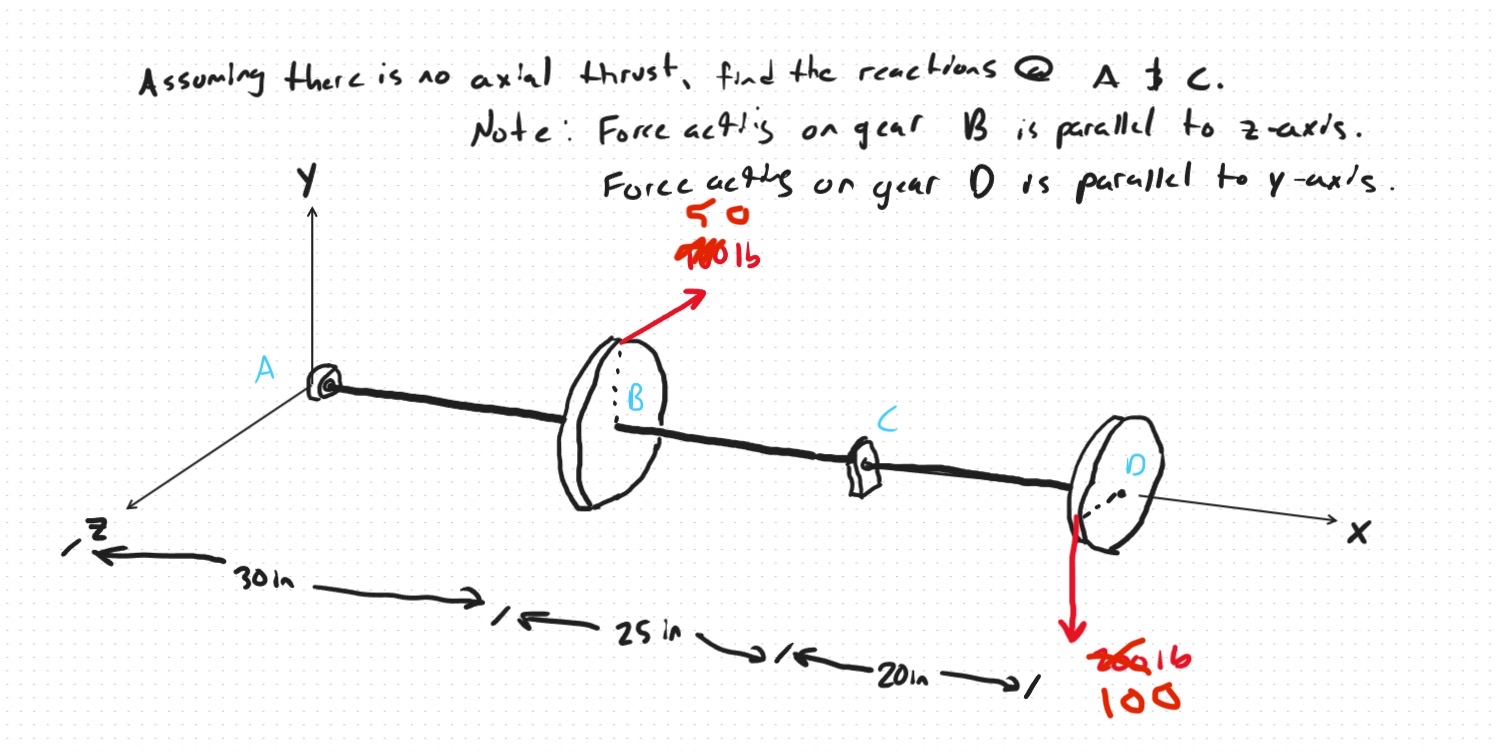 Assuming there is no axial thrust, find the reactions @ A & C.
Note: Force acting on gear B is parallel to z-axis.
Force acting on gear D is parallel to y-axis.
Y
50
lb
A
B
C
D
Z
X
30in
25in
20in
lb
100